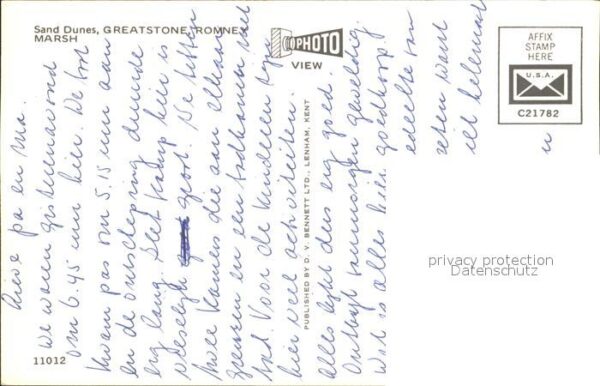 Sand Dunes, GREATSTONE, ROMNEY
MARSH
PHOTO
VIEW
AFFIX
STAMP
HERE
U.S.A.
C21782
PUBLISHED BY D. V. BENNETT LTD., LENHAM, KENT
11012
privacy protection
Datenschutz
Lieve pa en ma.
We waren gisterenavond
om 6.45 uur hier. De boot
kwam pas om 5.15 uur aan
en de ontscheping duurde
erg lang. Het kamp hier is
vreselijk groot. We hebben
twee kamers die aan elkaar
grenzen en een badkamer met
bad. Voor de kinderen zijn
hier veel activiteiten.
Alles lijkt dus erg goed.
Ontbijt vanmorgen geweldig
Wat is alles hier goedkoop!
van
zeten want
helemaal